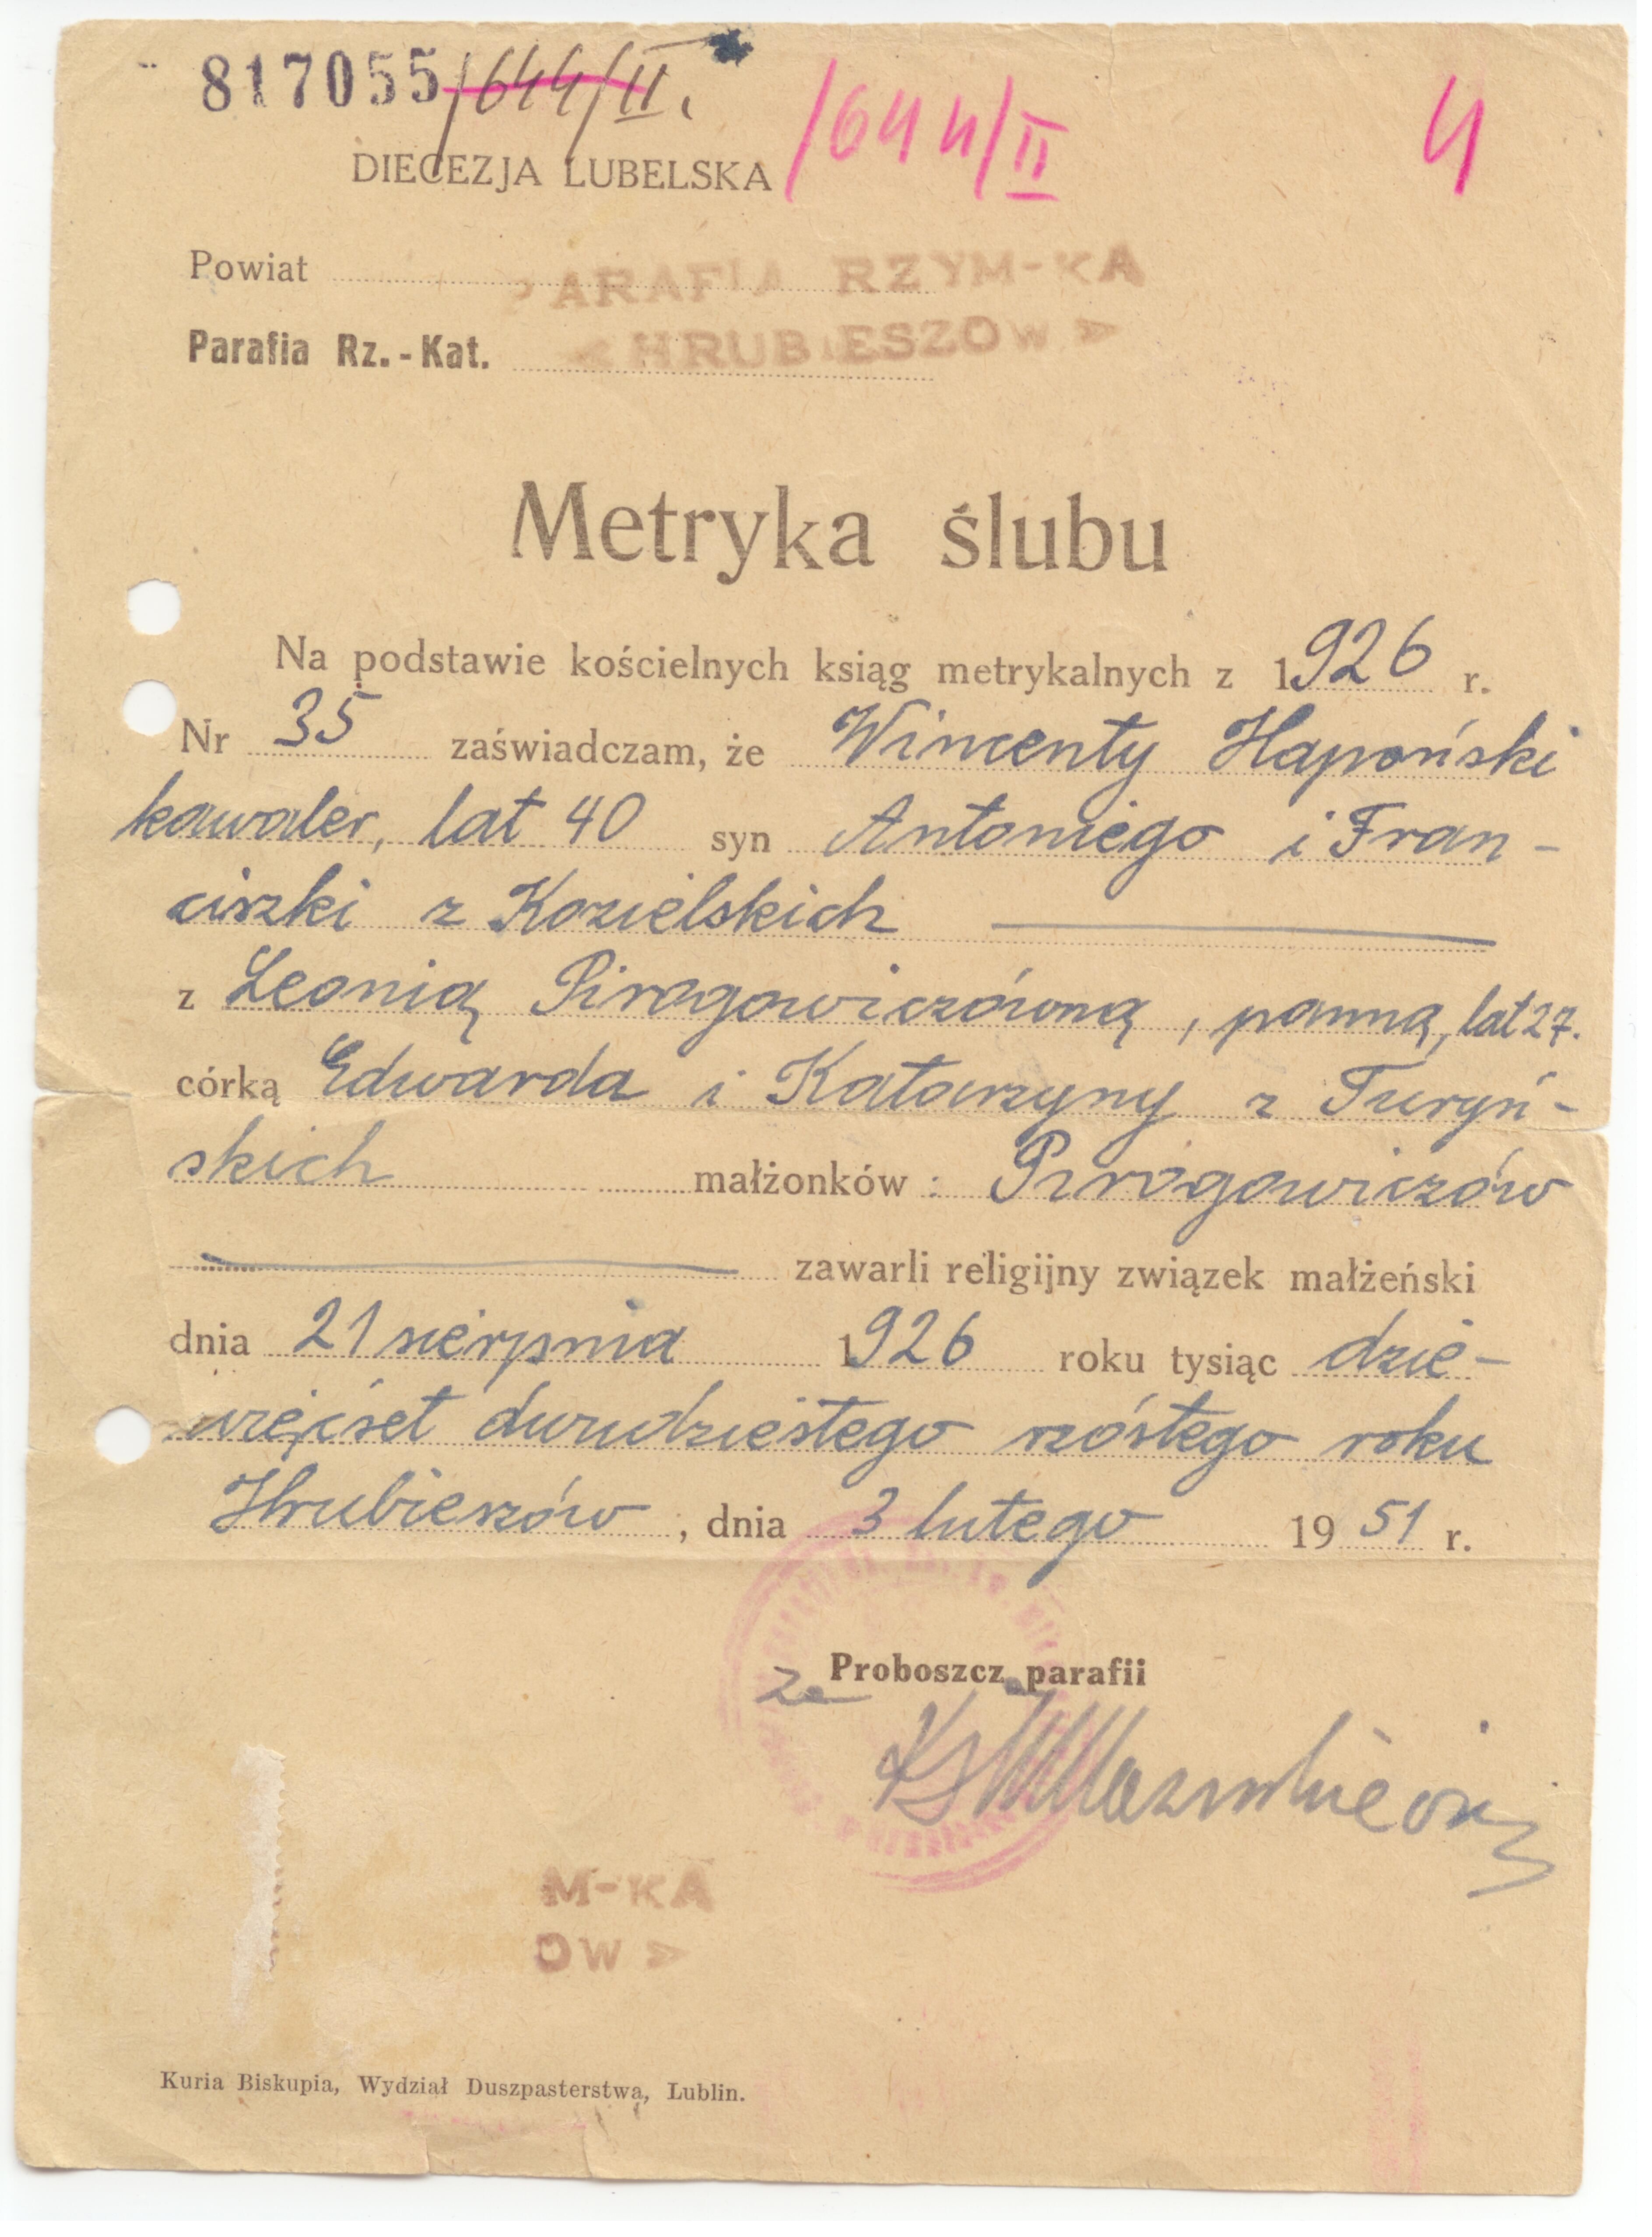 817055/644/II.
/644/II
4
DIECEZJA LUBELSKA
Powiat
PARAFIA RZYM-KA
Parafia Rz.-Kat.
HRUBIESZOW
Metryka ślubu
Na podstawie kościelnych ksiąg metrykalnych z 1926 r.
Nr 35 zaświadczam, że Wincenty Hapoński
kawaler, lat 40 syn Antoniego i Fran-
ciszki z Kozielskich
z Leonią Pirogowiczówną, panną, lat 27.
córką Edwarda i Katarzyny z Turyń-
skich małżonków: Pirogowiczów
zawarli religijny związek małżeński
dnia 21 sierpnia 1926 roku tysiąc dzie-
więćset dwudziestego szóstego roku
Hrubieszów, dnia 3 lutego 1951 r.
za Proboszcza parafii
Ks
M-KA
OW
Kuria Biskupia, Wydział Duszpasterstwa, Lublin.